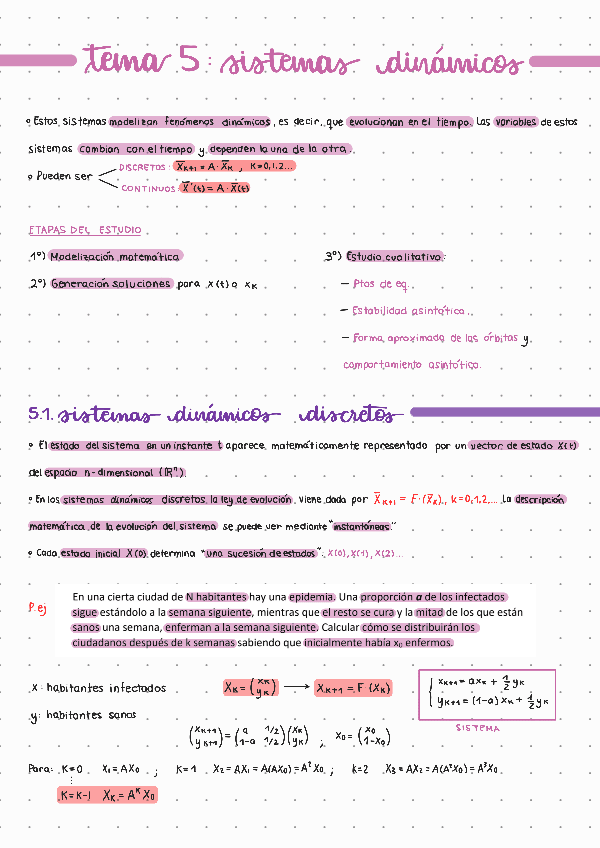 tema 5: sistemas dinámicos
• Estos sistemas modelizan fenómenos dinámicos, es decir, que evolucionan en el tiempo. Las variables de estos
sistemas cambian con el tiempo y dependen la una de la otra.
• Pueden ser
DISCRETOS: X̄ₖ₊₁ = A · X̄ₖ , K=0,1,2...
CONTINUOS: X̄'(t) = A · X̄(t)
ETAPAS DEL ESTUDIO
1º) Modelización matemática
2º) Generación soluciones para x(t) o xₖ
3º) Estudio cualitativo:
— Ptos de eq.
— Estabilidad asintótica.
— Forma aproximada de las órbitas y
comportamiento asintótico.
5.1. sistemas dinámicos discretos
• El estado del sistema en un instante t aparece matemáticamente representado por un vector de estado X(t)
del espacio n-dimensional (ℝⁿ).
• En los sistemas dinámicos discretos, la ley de evolución, viene dada por X̄ₖ₊₁ = F·(X̄ₖ), k=0,1,2,... La descripción
matemática de la evolución del sistema se puede ver mediante "instantáneas".
• Cada estado inicial X(0) determina "una sucesión de estados": X(0), X(1), X(2)...
P.ej
En una cierta ciudad de N habitantes hay una epidemia. Una proporción a de los infectados
sigue estándolo a la semana siguiente, mientras que el resto se cura y la mitad de los que están
sanos una semana, enferman a la semana siguiente. Calcular cómo se distribuirán los
ciudadanos después de k semanas sabiendo que inicialmente había x₀ enfermos.
x: habitantes infectados
y: habitantes sanos
Xₖ = (xₖ yₖ) → Xₖ₊₁ = F (Xₖ)
xₖ₊₁ = axₖ + 1/2 yₖ
yₖ₊₁ = (1-a) xₖ + 1/2 yₖ
SISTEMA
(xₖ₊₁ yₖ₊₁) = (a 1/2 1-a 1/2) (xₖ yₖ) ; x₀ = (x₀ 1-x₀)
Para: K=0 X₁ = AX₀ ; K=1 X₂ = AX₁ = A(AX₀) = A²X₀ ; k=2 X₃ = AX₂ = A(A²X₀) = A³X₀
K=K-1 Xₖ = AᴷX₀